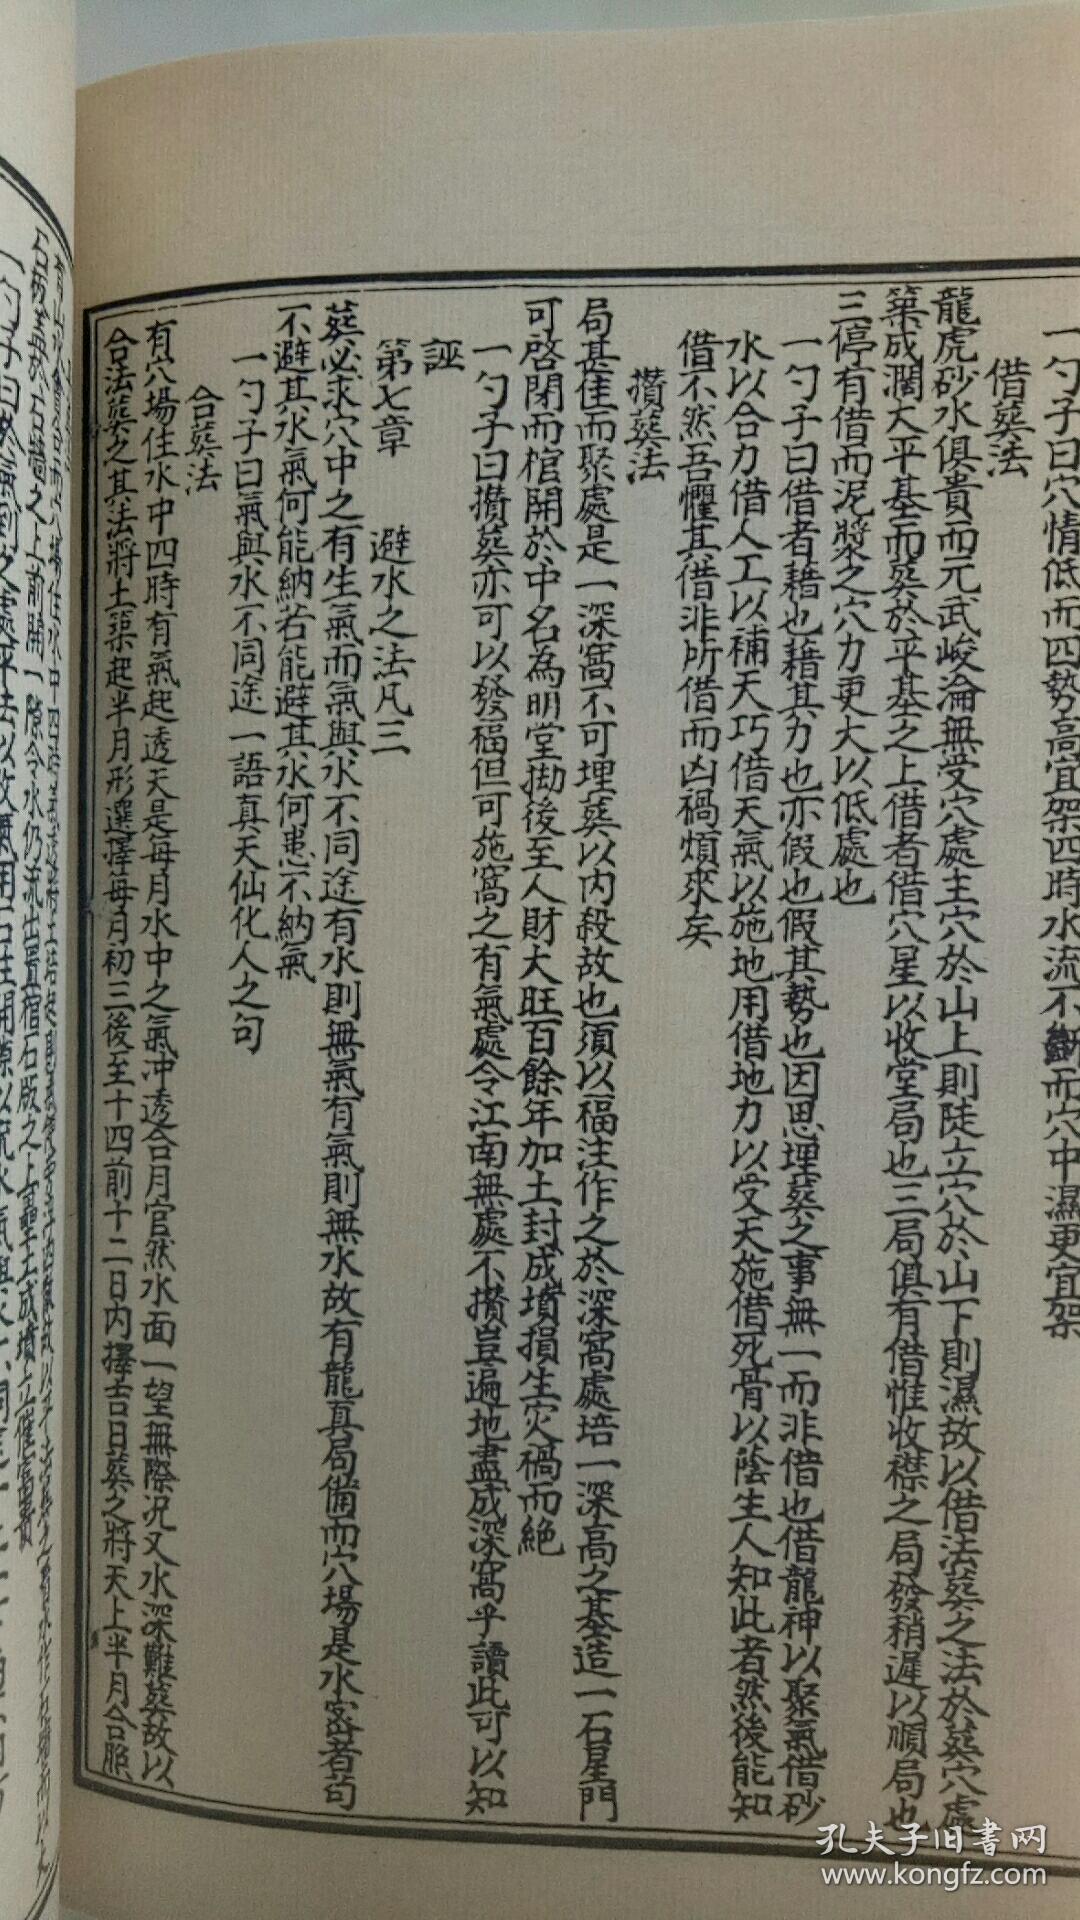 一勺子曰穴情低而四勢高宜架四時水流不斷而穴中濕更宜架
借葬法
龍虎砂水俱貴而元武峻淪無受穴處主穴於山上則陡立穴於山下則濕故以借法葬之法於葬穴處
築成濶大平基而葬於平基之上借者借穴星以收堂局也三局俱有借惟收襟之局發稍遲以順局也
三停有借而泥漿之穴力更大以低處也
一勺子曰借者藉也藉其力也亦假也假其勢也因思埋葬之事無一而非借也借龍神以聚氣借砂
水以合力借人工以補天巧借天氣以施地用借地力以受天施借死骨以蔭生人知此者然後能知
借不然吾懼其借非所借而凶禍煩來矣
攢葬法
局甚佳而聚處是一深窩不可埋葬以内殺故也須以福注作之於深窩處培一深高之基造一石星門
可啓閉而棺開於中名為明堂拗後至人財大旺百餘年加土封成墳損生灾禍而絶
一勺子曰攢葬亦可以發福但可施窩之有氣處今江南無處不攢豈遍地盡成深窩乎讀此可以知
誣
第七章 避水之法凡三
葬必求穴中之有生氣而氣與水不同途有水則無氣有氣則無水故有龍真局備而穴場是水窩者苟
不避其水氣何能納若能避其水何患不納氣
一勺子曰氣與水不同途一語真天仙化人之句
合葬法
有穴場住水中四時有氣起透天是每月水中之氣冲透合月官然水面一望無際况又水深難葬故以
合法葬之其法將土築起半月形選擇每月初三後至十四前十二日内擇吉日葬之將天上半月合照